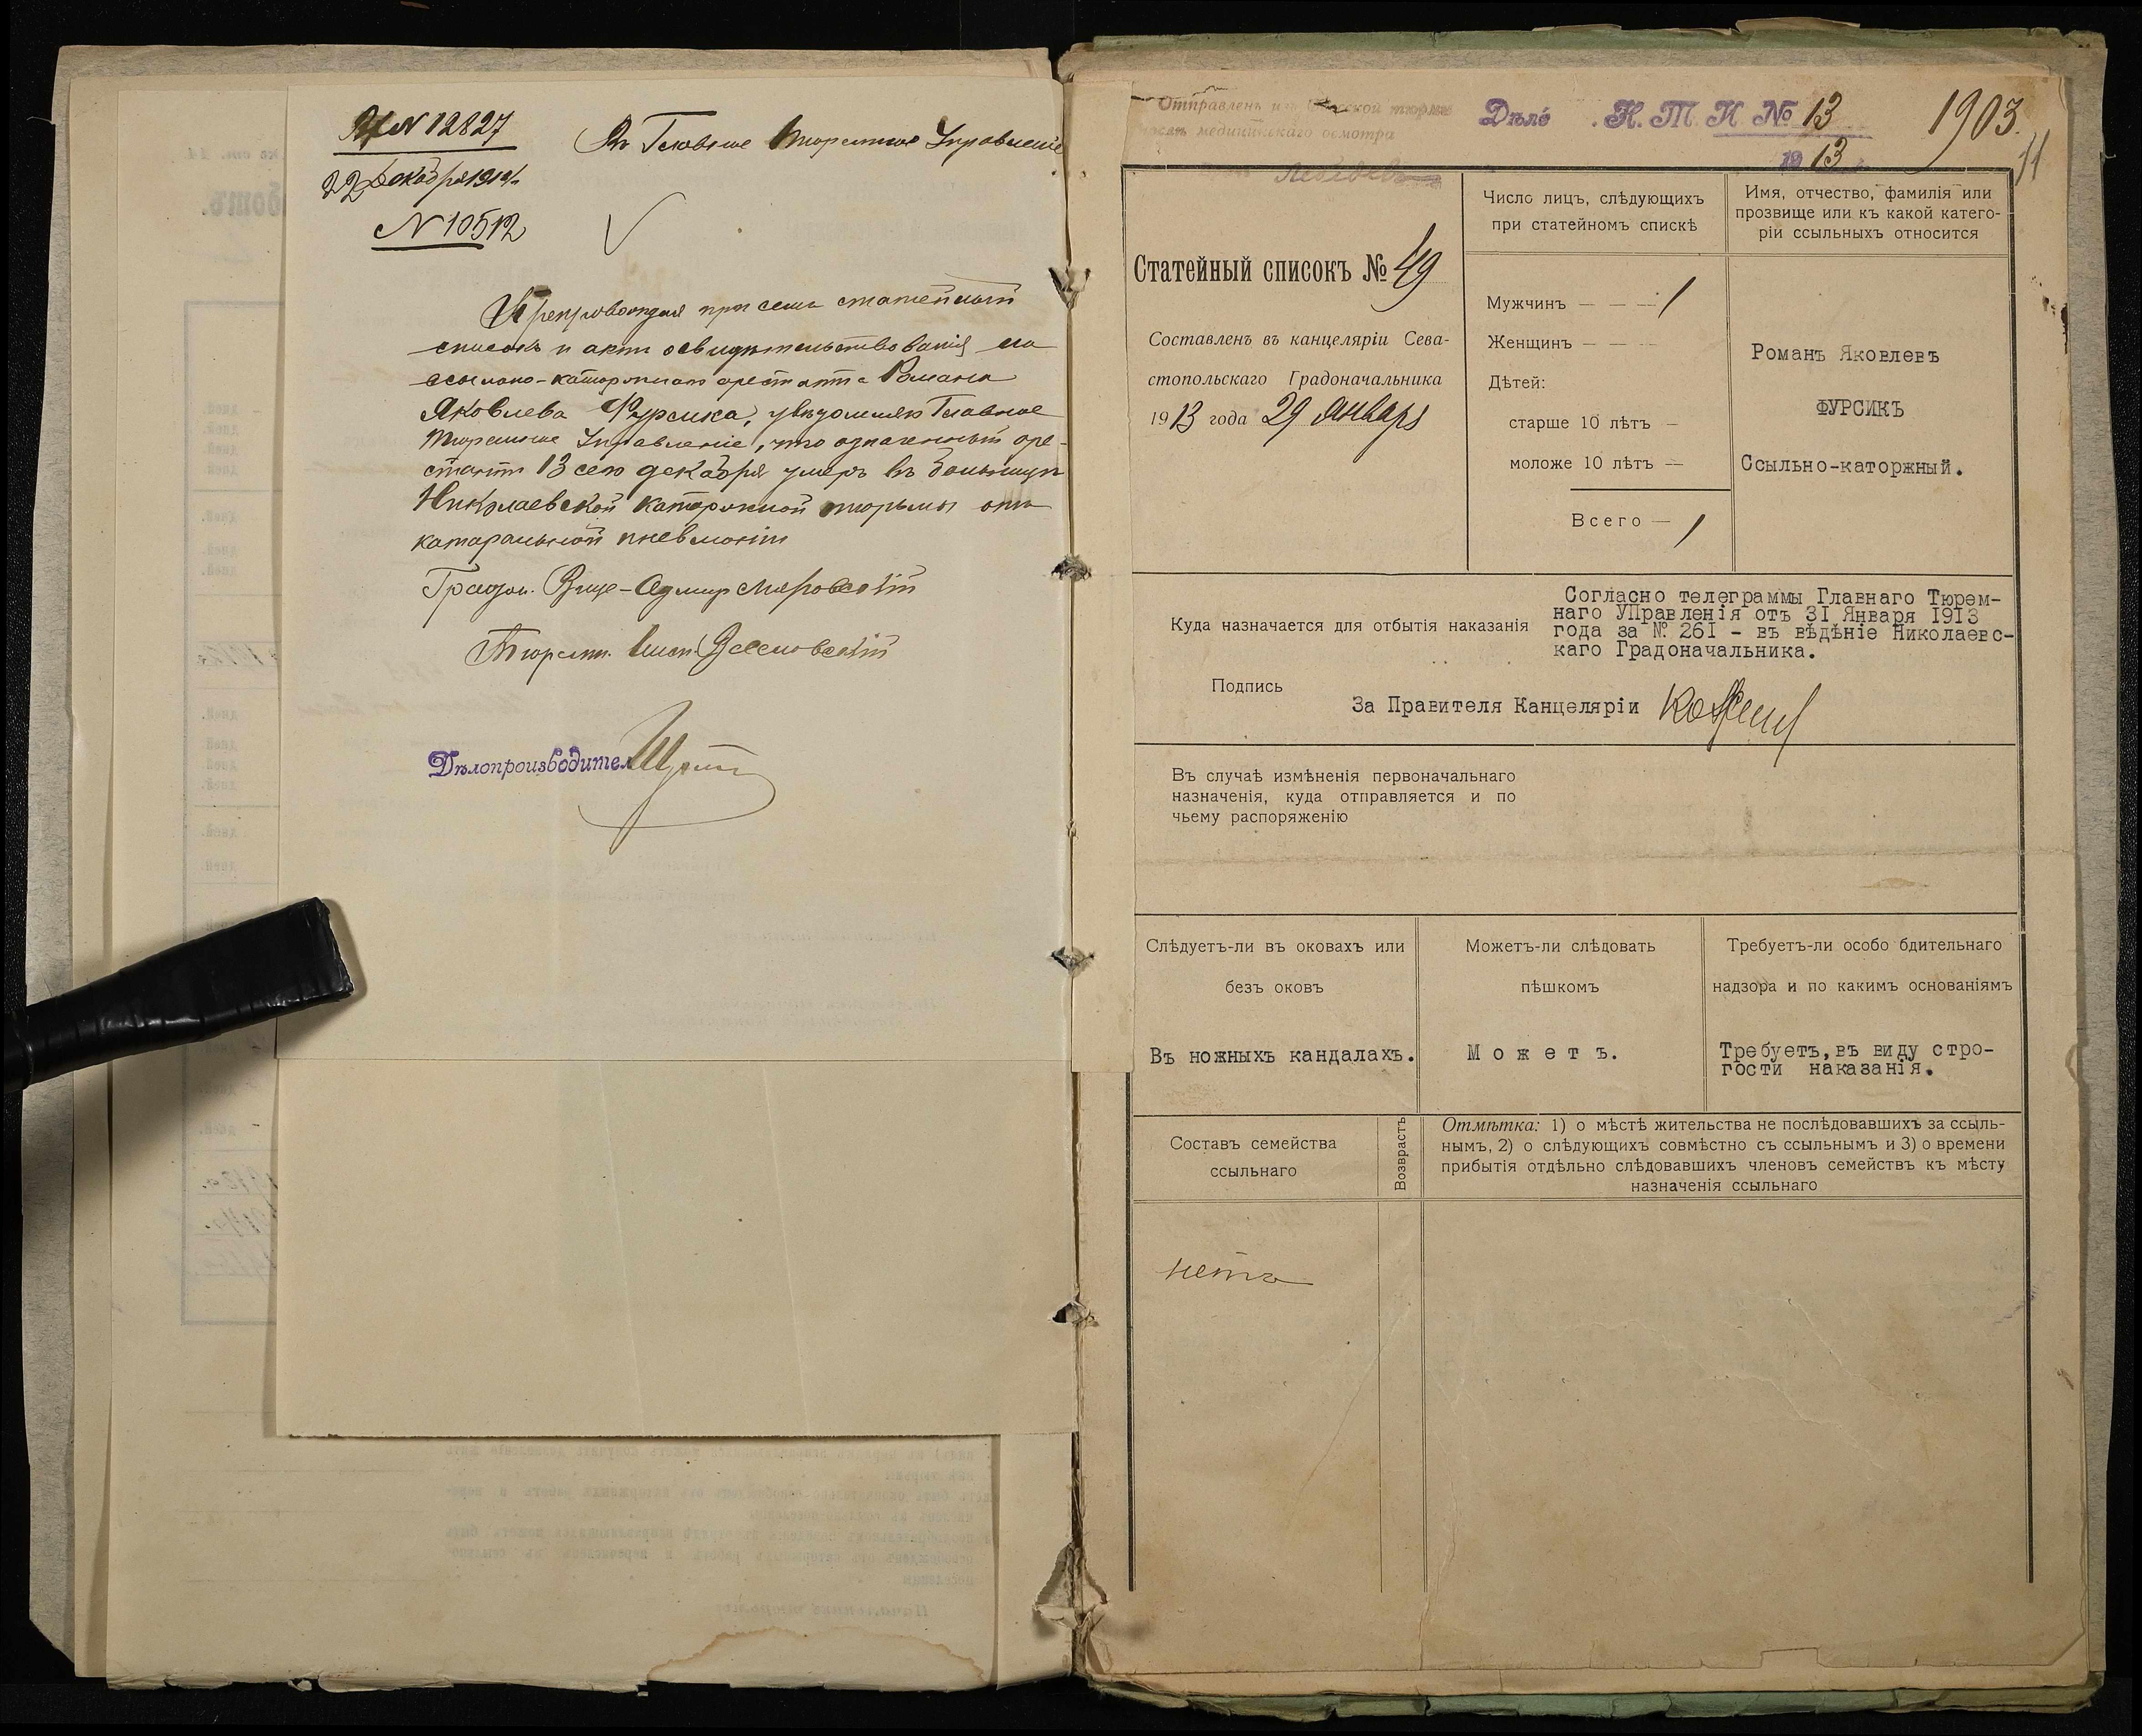 № 12827
22 Декабря 1914 г.
№ 10512
Въ Главное Тюремное Управленіе
Препровождая при семъ статейный
списокъ и актъ освидѣтельствованія на
ссыльно-каторжнаго арестанта Романа
Яковлева Фурсика, увѣдомляю Главное
Тюремное Управленіе, что означенный аре-
стантъ 13 сего декабря умеръ въ больницѣ
Николаевской каторжной тюрьмы отъ
катаральной пневмоніи
Градон. Вице-Адмир
Тюремн. Инсп.
Дѣлопроизводитель
Отправленъ изъ тюрьмы
послѣ медицинскаго осмотра
Дѣло Н. Т. К № 13
1913
1903.
11
Статейный списокъ № 49
Составленъ въ канцеляріи Сева-
стопольскаго Градоначальника
1913 года 29 Января
Число лицъ, слѣдующихъ
при статейномъ спискѣ
Мужчинъ — — — 1
Женщинъ — — —
Дѣтей:
старше 10 лѣтъ —
моложе 10 лѣтъ —
Всего — 1
Имя, отчество, фамилія или
прозвище или къ какой катего-
ріи ссыльныхъ относится
Романъ Яковлевъ
ФУРСИКЪ
Ссыльно-каторжный.
Куда назначается для отбытія наказанія
Согласно телеграммы Главнаго Тюрем-
наго УПравленія отъ 31 Января 1913
года за № 261 - въ вѣдѣніе Николаевс-
каго Градоначальника.
Подпись
За Правителя Канцеляріи
Въ случаѣ измѣненія первоначальнаго
назначенія, куда отправляется и по
чьему распоряженію
Слѣдуетъ-ли въ оковахъ или
безъ оковъ
Въ ножныхъ кандалахъ.
Можетъ-ли слѣдовать
пѣшкомъ
М о ж е т ъ.
Требуетъ-ли особо бдительнаго
надзора и по какимъ основаніямъ
Требуетъ, въ виду стро-
гости наказанія.
Составъ семейства
ссыльнаго
Возврастъ
Отмѣтка: 1) о мѣстѣ жительства не послѣдовавшихъ за ссыль-
нымъ, 2) о слѣдующихъ совмѣстно съ ссыльнымъ и 3) о времени
прибытія отдѣльно слѣдовавшихъ членовъ семействъ къ мѣсту
назначенія ссыльнаго
нетъ